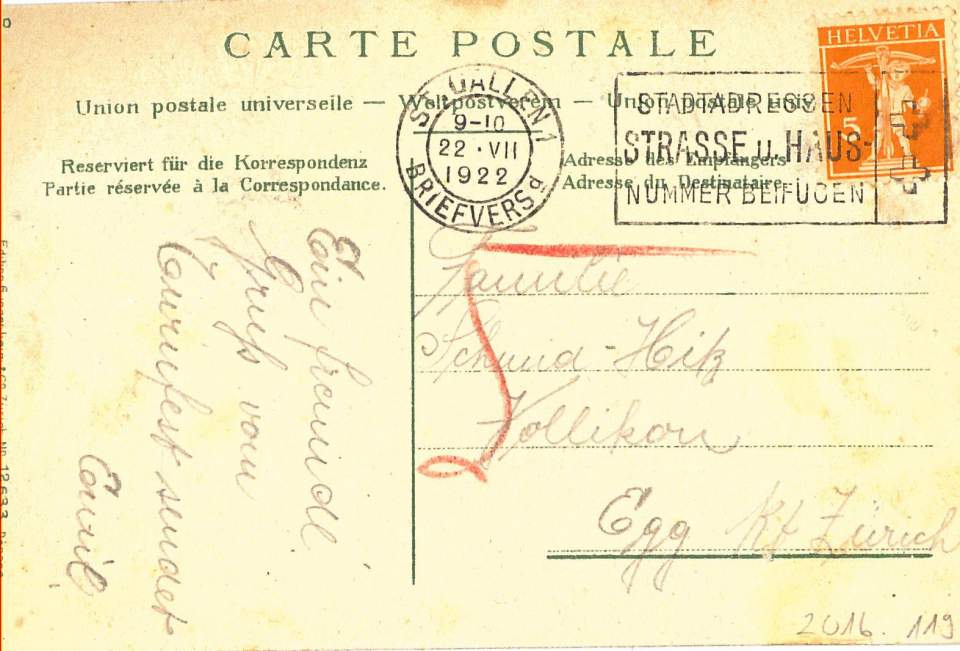 CARTE POSTALE
Union postale universelle — Weltpostverein — Union postale univ.
HELVETIA
5
ST. GALLEN 1
9-10
22 · VII
1922
BRIEFVERSd
STADTADRESSEN
STRASSE u. HAUS-
NUMMER BEIFÜGEN
Reserviert für die Korrespondenz
Partie réservée à la Correspondance.
Adresse des Empfängers
Adresse du Destinataire
Ein freundl
Gruss vom
Turnfest sendet
Emil
Familie
Schmid-Hitz
Vollikon
Egg Kt Zürich
2016. 119